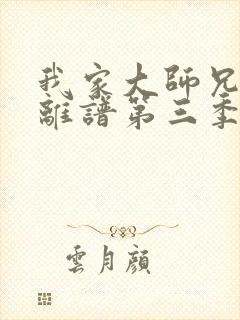 我家大師兄
離譜第三季
雲月顔